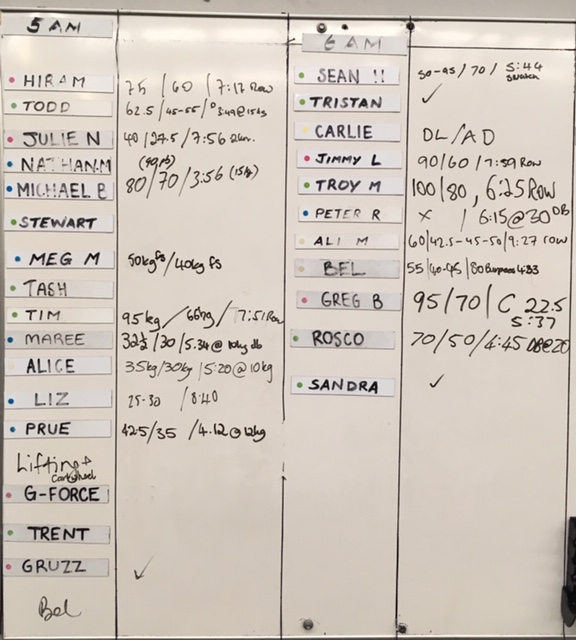 5 AM
HIRAM 75 / 60 / 7:17 Row
TODD 62.5 / 45-55 / 3:49@15kg
JULIE N 40 / 27.5 / 7:56
NATHAN.M
MICHAEL B 80/70/3:56 (15kg)
STEWART
MEG M 50kg fs / 40kg fs
TASH
TIM 95kg / 66kg / 7:51 Row
MAREE 32½ / 30 / 5.34 @ 10kg db
ALICE 35kg/30kg / 5:20@10kg
LIZ 25-30 / 8:40
PRUE 42.5/35 / 4.12@12kg
Lifting +
cartwheel
G-FORCE
TRENT
GRUZZ ✓
Bel
6 AM
SEAN H / 70 / 5:44
TRISTAN ✓
CARLIE DL/AD
JIMMY L 90/60/7:59 ROW
TROY M 100/80, 6:25 ROW
PETER R x / 6:15@30 DB
ALI M 60/42.5-45-50/9:27 row
BEL 55/40-45/80 Burpees 4:33
GREG B 95/70/C 22.5
5:37
ROSCO 70/50/4:45 DB@20
SANDRA ✓